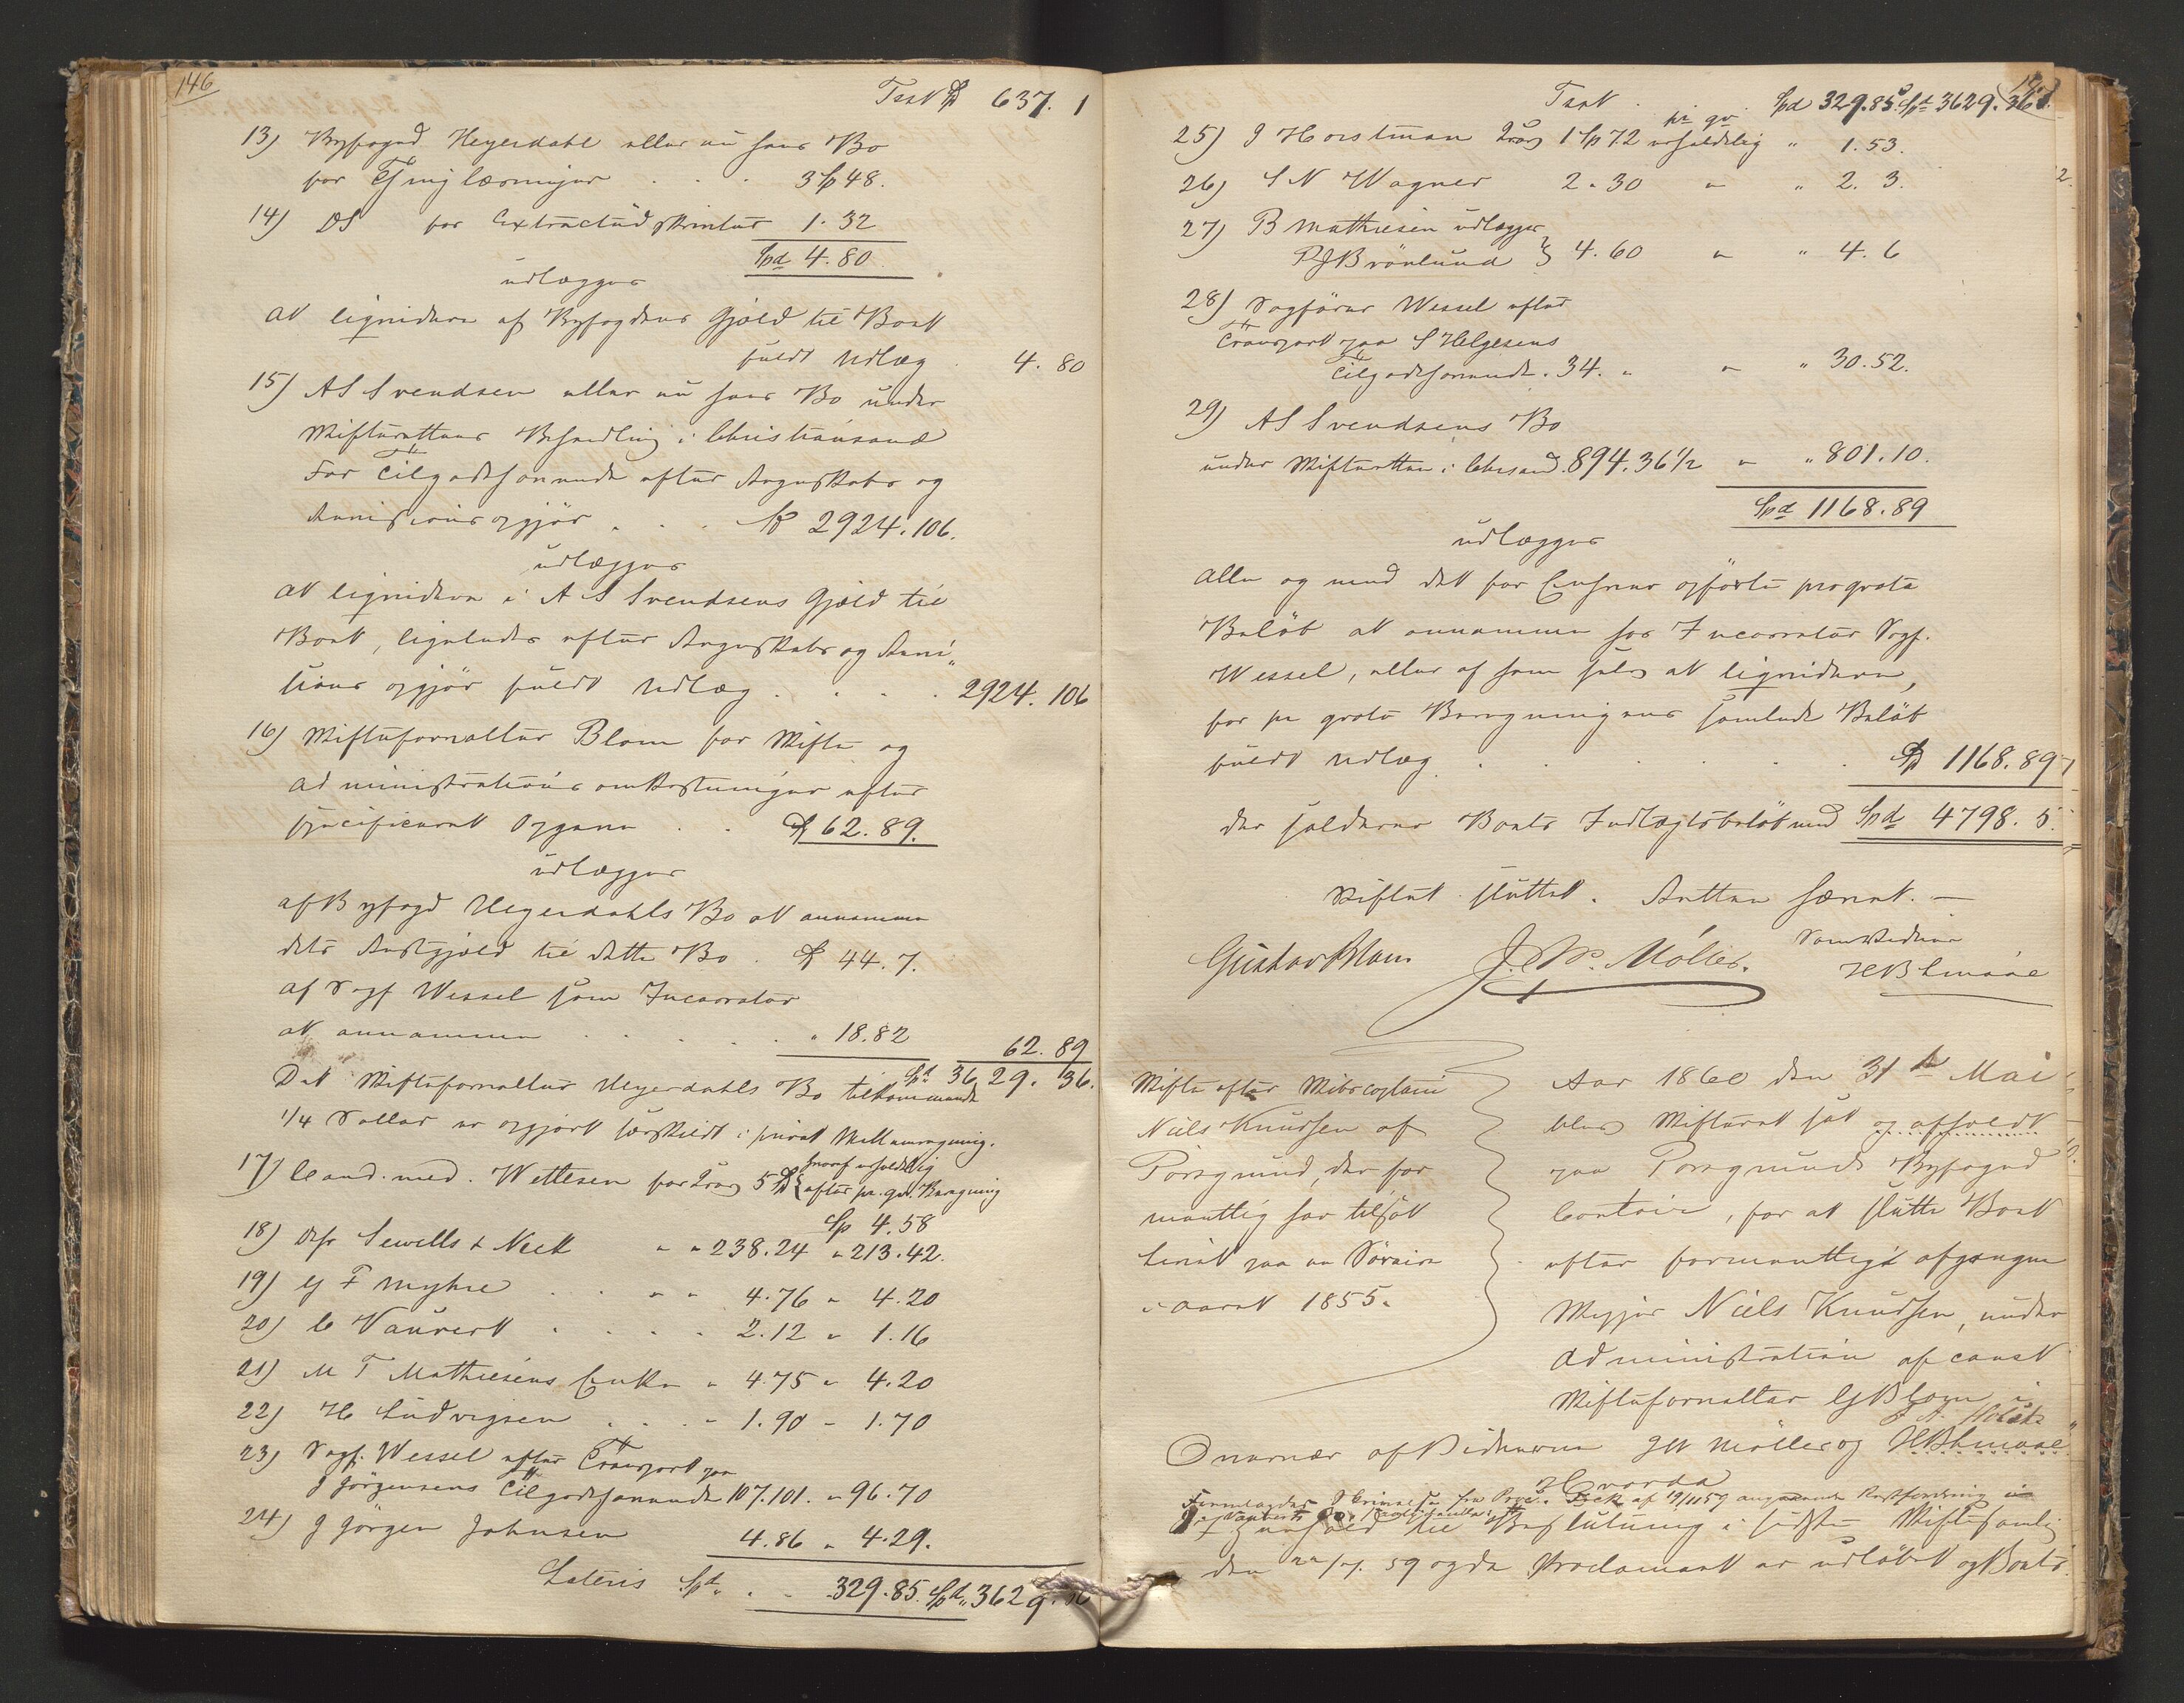 146
Trsk Spd 637. 1
13) Byfoged Heyerdahl eller nu hans Bo
for Thinglæsninger . . . 3 Sp 48.
14) DS for Extractudskrifter 1. 32
Spd 4. 80.
udlægges
at liqvidere af Byfogdens Gjæld til Boet
fuldt Udlæg . 4. 80
15) AS Svendsen eller nu hans Bo under
Skifterettens Behandling i Christiansand
For Tilgodehavende efter Regnskabs og
Revisions opgjør . . . Sp 2924. 106.
udlægges
at liqvidere i A S Svendsens Gjæld til
Boet, ligeledes efter Regnskabs og Revi„
sions opgjør fuldt Udlæg . . . . 2924. 106
16) Skifteforvalter Blom for Skifte og
Administrations omkostninger efter
specificeret Opgave . . Sp 62. 89.
udlægges
af Byfogd Heyerdahls Bo at annamme
dets Restgjæld til dette Bo . Sp 44. 7.
af Sagf Wessel som Incassator
at annamme . . . . . " 18. 82
62. 89
Spd 3629. 36.
Det Skifteforvalter Heyerdahls Bo tilkommende
1/4 Sallær er opgjort særskildt i privat Mellemregning.
17) Cand. med. Wettesen for Krav 5 Sp hvoraf erholdelig
efter pr. qvo. Beregning
Sp 4. 58
18) DHr Sewells & Neck " " 238. 24 " 213. 42.
19) G F Myhre . . " " 4. 76 " 4. 20
20) C Vauvert . . . . " 2. 12 " 1. 16
21) M T Mathiesens Enke " 4. 75 " 4. 20
22) H Ludvigsen . . . " 1. 90 " 1. 70
23) Sagf. Wessel efter Transport paa
J Jörgensens Tilgodehavende 107. 101. " 96. 70
24) J Jörgen Johnsen 4. 86 " 4. 29.
Lateris Spd . . 329. 85. Spd 3629. 36
Trsk . Spd 329. 85. Spd 3629. 36
pr qv
25) J Horstman Krav 1 Sp 72 erholdelig " 1. 53.
26) S N Wagner 2 " 30 " " 2. 3.
27) B Mathiesen udlægger
P J Brönlund 4. 60 " " 4. 6
28) Sagförer Wessel efter
Transport paa S Helgesens
Tilgodehavende . 34. " " " 30. 52.
29) AS Svendsens Bo
under Skifteretten i Chrsand. 894. 36 1/2 " " 801. 10.
Spd 1168. 89
udlægges
alle og med det for Enhver opförte proqvota
Belöb at annamme hos Incassator Sagf.
Wessel, eller af ham selv at liqvidere,
for pr qvota Beregningens samlede Belöb
fuldt Udlæg . . . . . . Sp 1168. 89
der salderer Boets Indtægtsbelöb med Spd 4798. 5.
Skiftet sluttet. Retten hævet. —
Gustav Blom J. W. Möller. Som Vidne
Skifte efter Skibscaptain
Niels Knudsen af
Porsgrund, der for
mentlig har tilsat
Livet paa en Söreise
i Aaret 1855.
Aar 1860 den 31te Mai
blev Skifteret sat og afholdt
paa Porsgrunds Byfogeds
Contoir, for at slutte Boet
efter formentligt afgangne
Skipper Niels Knudsen, under
Administration af const
Skifteforvalter G Blom i
Overvær af Vidnerne J W Möller og
Fremlagdes Skrivelse fra af 19/11 59 angaaende
I Henhold til Beslutning i sidste Skiftesamling
den 59 og da Proclamaet er udløbet og Boets